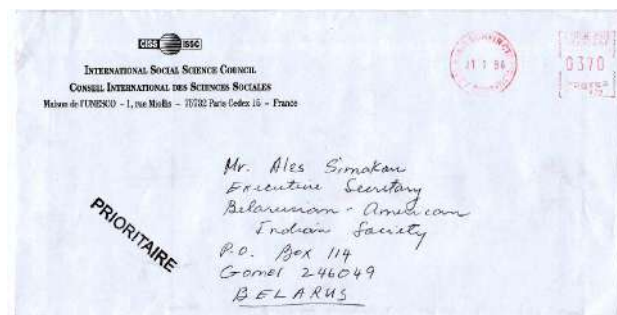 CISS ISSC
INTERNATIONAL SOCIAL SCIENCE COUNCIL
CONSEIL INTERNATIONAL DES SCIENCES SOCIALES
Maison de l'UNESCO - 1, rue Miollis - 75732 Paris Cedex 15 - France
0370
PRIORITAIRE
Mr. Ales Simakou
Executive Secretary
Belarusian-American
Indian Society
P.O. Box 114
Gomel 246049
BELARUS